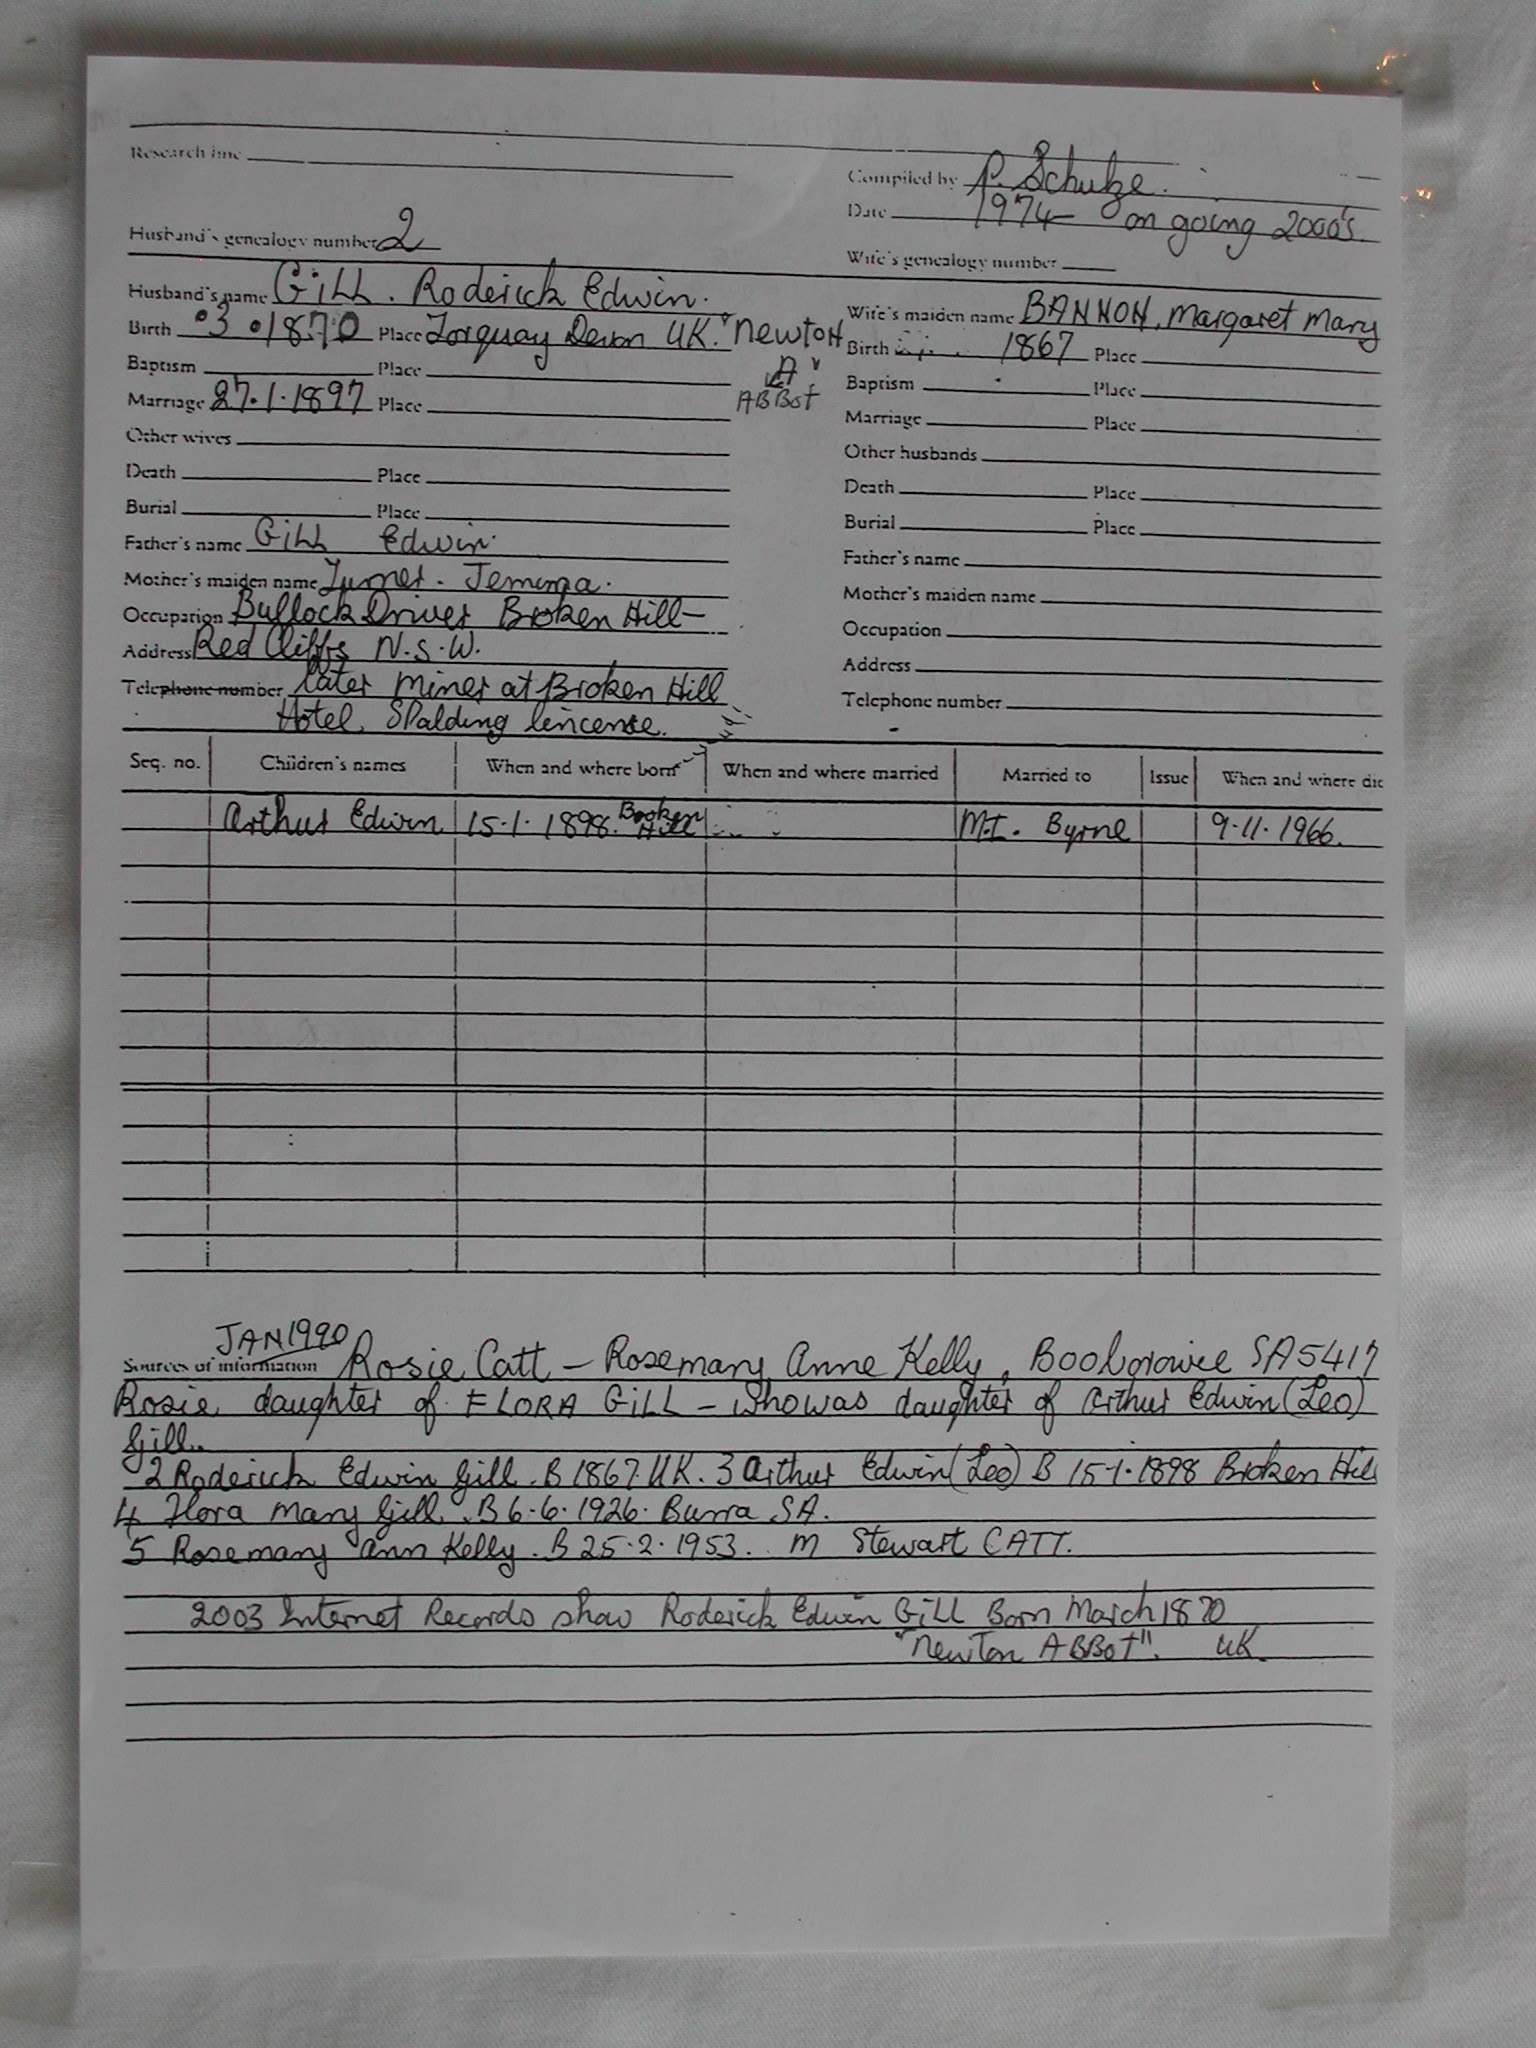 Research line
Compiled by P. Schulze.
Date 1974 - on going 2000's.
Husband's genealogy number 2
Wife's genealogy number
Husband's name Gill. Roderick Edwin.
Wife's maiden name BANNON, Margaret Mary
Birth 3.1870 Place Torquay Devon UK. "Newton
A"
ABBot
Birth 1867 Place
Baptism Place
Baptism Place
Marriage 27.1.1897 Place
Marriage Place
Other wives
Other husbands
Death Place
Death Place
Burial Place
Burial Place
Father's name Gill Edwin.
Father's name
Mother's maiden name Turner. Jemima.
Mother's maiden name
Occupation Bullock Driver Broken Hill -
Occupation
Address Red Cliffs N.S.W.
Address
Telephone number later miner at Broken Hill
Telephone number
Hotel. Spalding lincense.
Seq. no. Children's names When and where born When and where married Married to Issue When and where die
Arthur Edwin 15.1.1898. Broken Hill M.I. Byrne 9.11.1966.
JAN 1990
Sources of information Rosie Catt - Rosemary Anne Kelly, Boolorowie SA 5417
Rosie daughter of FLORA GILL - who was daughter of Arthur Edwin (Leo)
Gill.
2 Roderick Edwin Gill. B 1867. UK. 3 Arthur Edwin (Leo) B 15.1.1898 Broken Hill
4 Flora Mary Gill. B 6.6.1926. Burra SA.
5 Rosemary Ann Kelly. B 25.2.1953. M Stewart CATT.
2003 Internet Records show Roderick Edwin Gill Born March 1870
"Newton ABBot". UK.